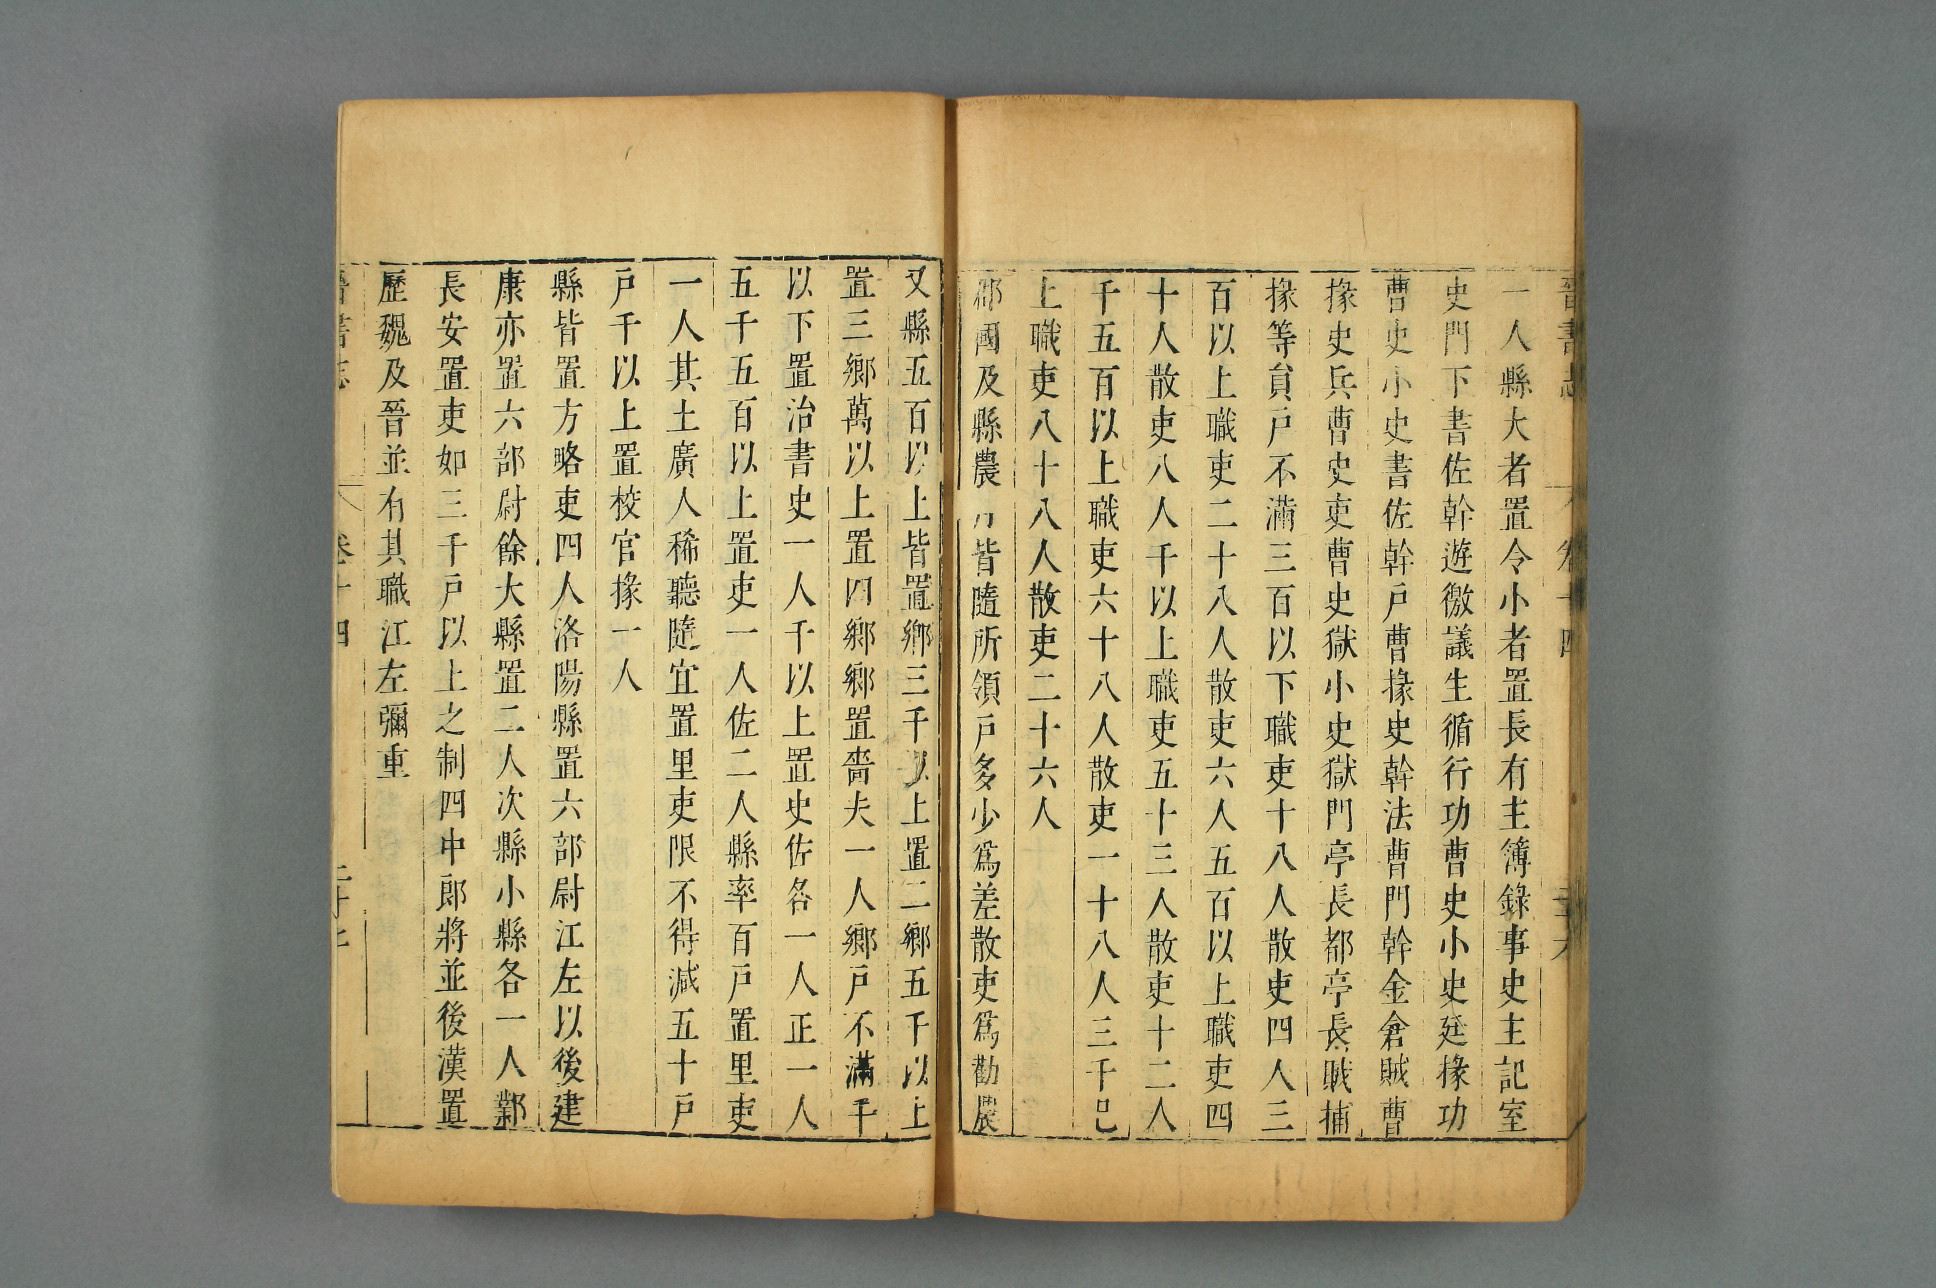 晉書志 卷十四 二十六
一人縣大者置令小者置長有主簿錄事史主記室
史門下書佐幹遊徼議生循行功曹史小史廷掾功
曹史小史書佐幹戶曹掾史幹法曹門幹金倉賊曹
掾史兵曹史吏曹史獄小史獄門亭長都亭長賊捕
掾等員戶不滿三百以下職吏十八人散吏四人三
百以上職吏二十八人散吏六人五百以上職吏四
十人散吏八人千以上職吏五十三人散吏十二人
千五百以上職吏六十八人散吏一十八人三千已
上職吏八十八人散吏二十六人
郡國及縣農月皆隨所領戶多少爲差散吏爲勸農
又縣五百以上皆置鄉三千以上置二鄉五千以上
置三鄉萬以上置四鄉鄉置嗇夫一人鄉戶不滿千
以下置治書史一人千以上置史佐各一人正一人
五千五百以上置吏一人佐二人縣率百戶置里吏
一人其土廣人稀聽隨宜置里吏限不得減五十戶
戶千以上置校官掾一人
縣皆置方略吏四人洛陽縣置六部尉江左以後建
康亦置六部尉餘大縣置二人次縣小縣各一人鄴
長安置吏如三千戶以上之制四中郎將並後漢置
歷魏及晉並有其職江左彌重
晉書志 卷十四 二十七